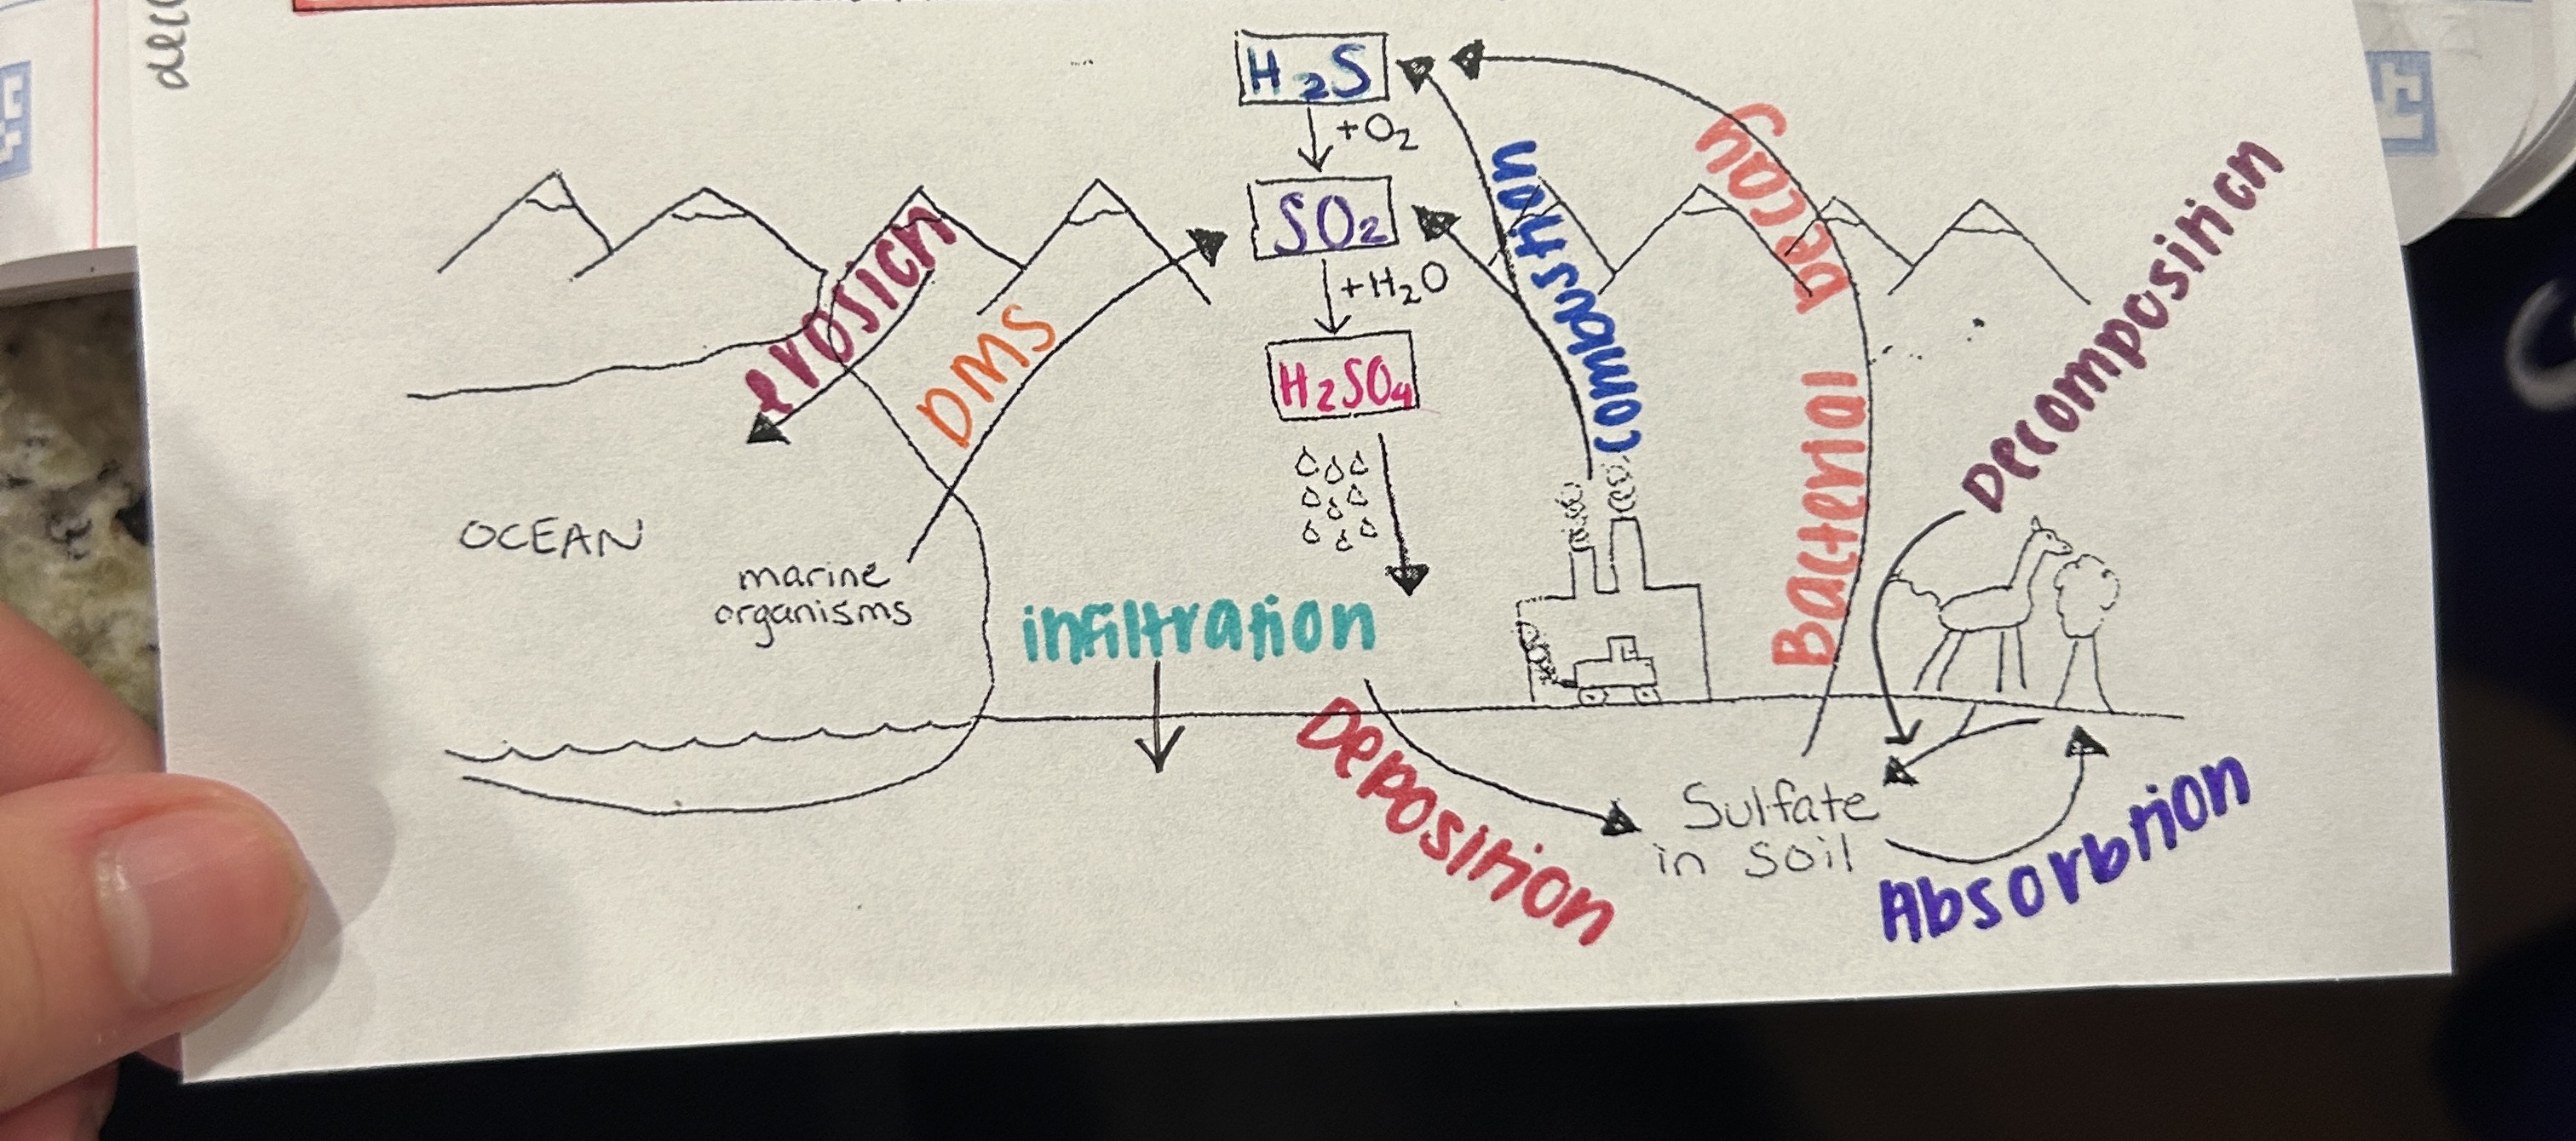 H₂S
+O₂
SO₂
+H₂O
H₂SO₄
erosion
DMS
combustion
Bacterial decay
Decomposition
OCEAN
marine
organisms
infiltration
Deposition
Sulfate
in soil
Absorbtion